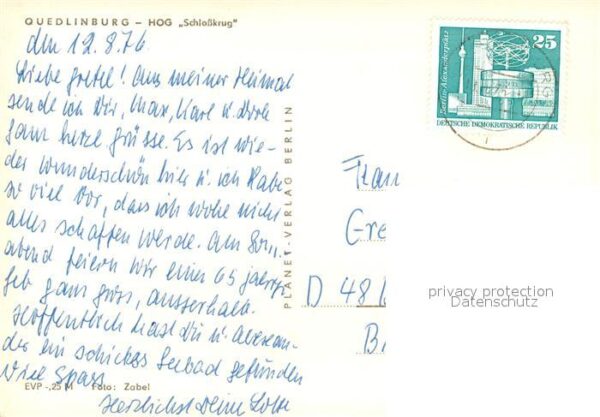 QUEDLINBURG – HOG „Schloßkrug"
den 12.8.76
Liebe Gretel! Aus meiner Heimat
sende ich Dir, Max, Karl u. Dorle
ganz herzl grüsse. Es ist wie-
der wunderschön hier u. ich habe
so viel vor, dass ich wohl nicht
alles schaffen werde. Am Sonn.
abend feiern wir einen 65 jährigen
Geb ganz gross, ausserhalb.
Hoffentlich hast Du u. Alexan-
der ein schickes Seebad gefunden
Viel Spass
Herzlichst Deine Lotte
EVP -,25 M Foto: Zabel
PLANET-VERLAG BERLIN
Berlin-Alexanderplatz
25
DEUTSCHE DEMOKRATISCHE REPUBLIK
Frau
Gre
D 48
B
privacy protection
Datenschutz